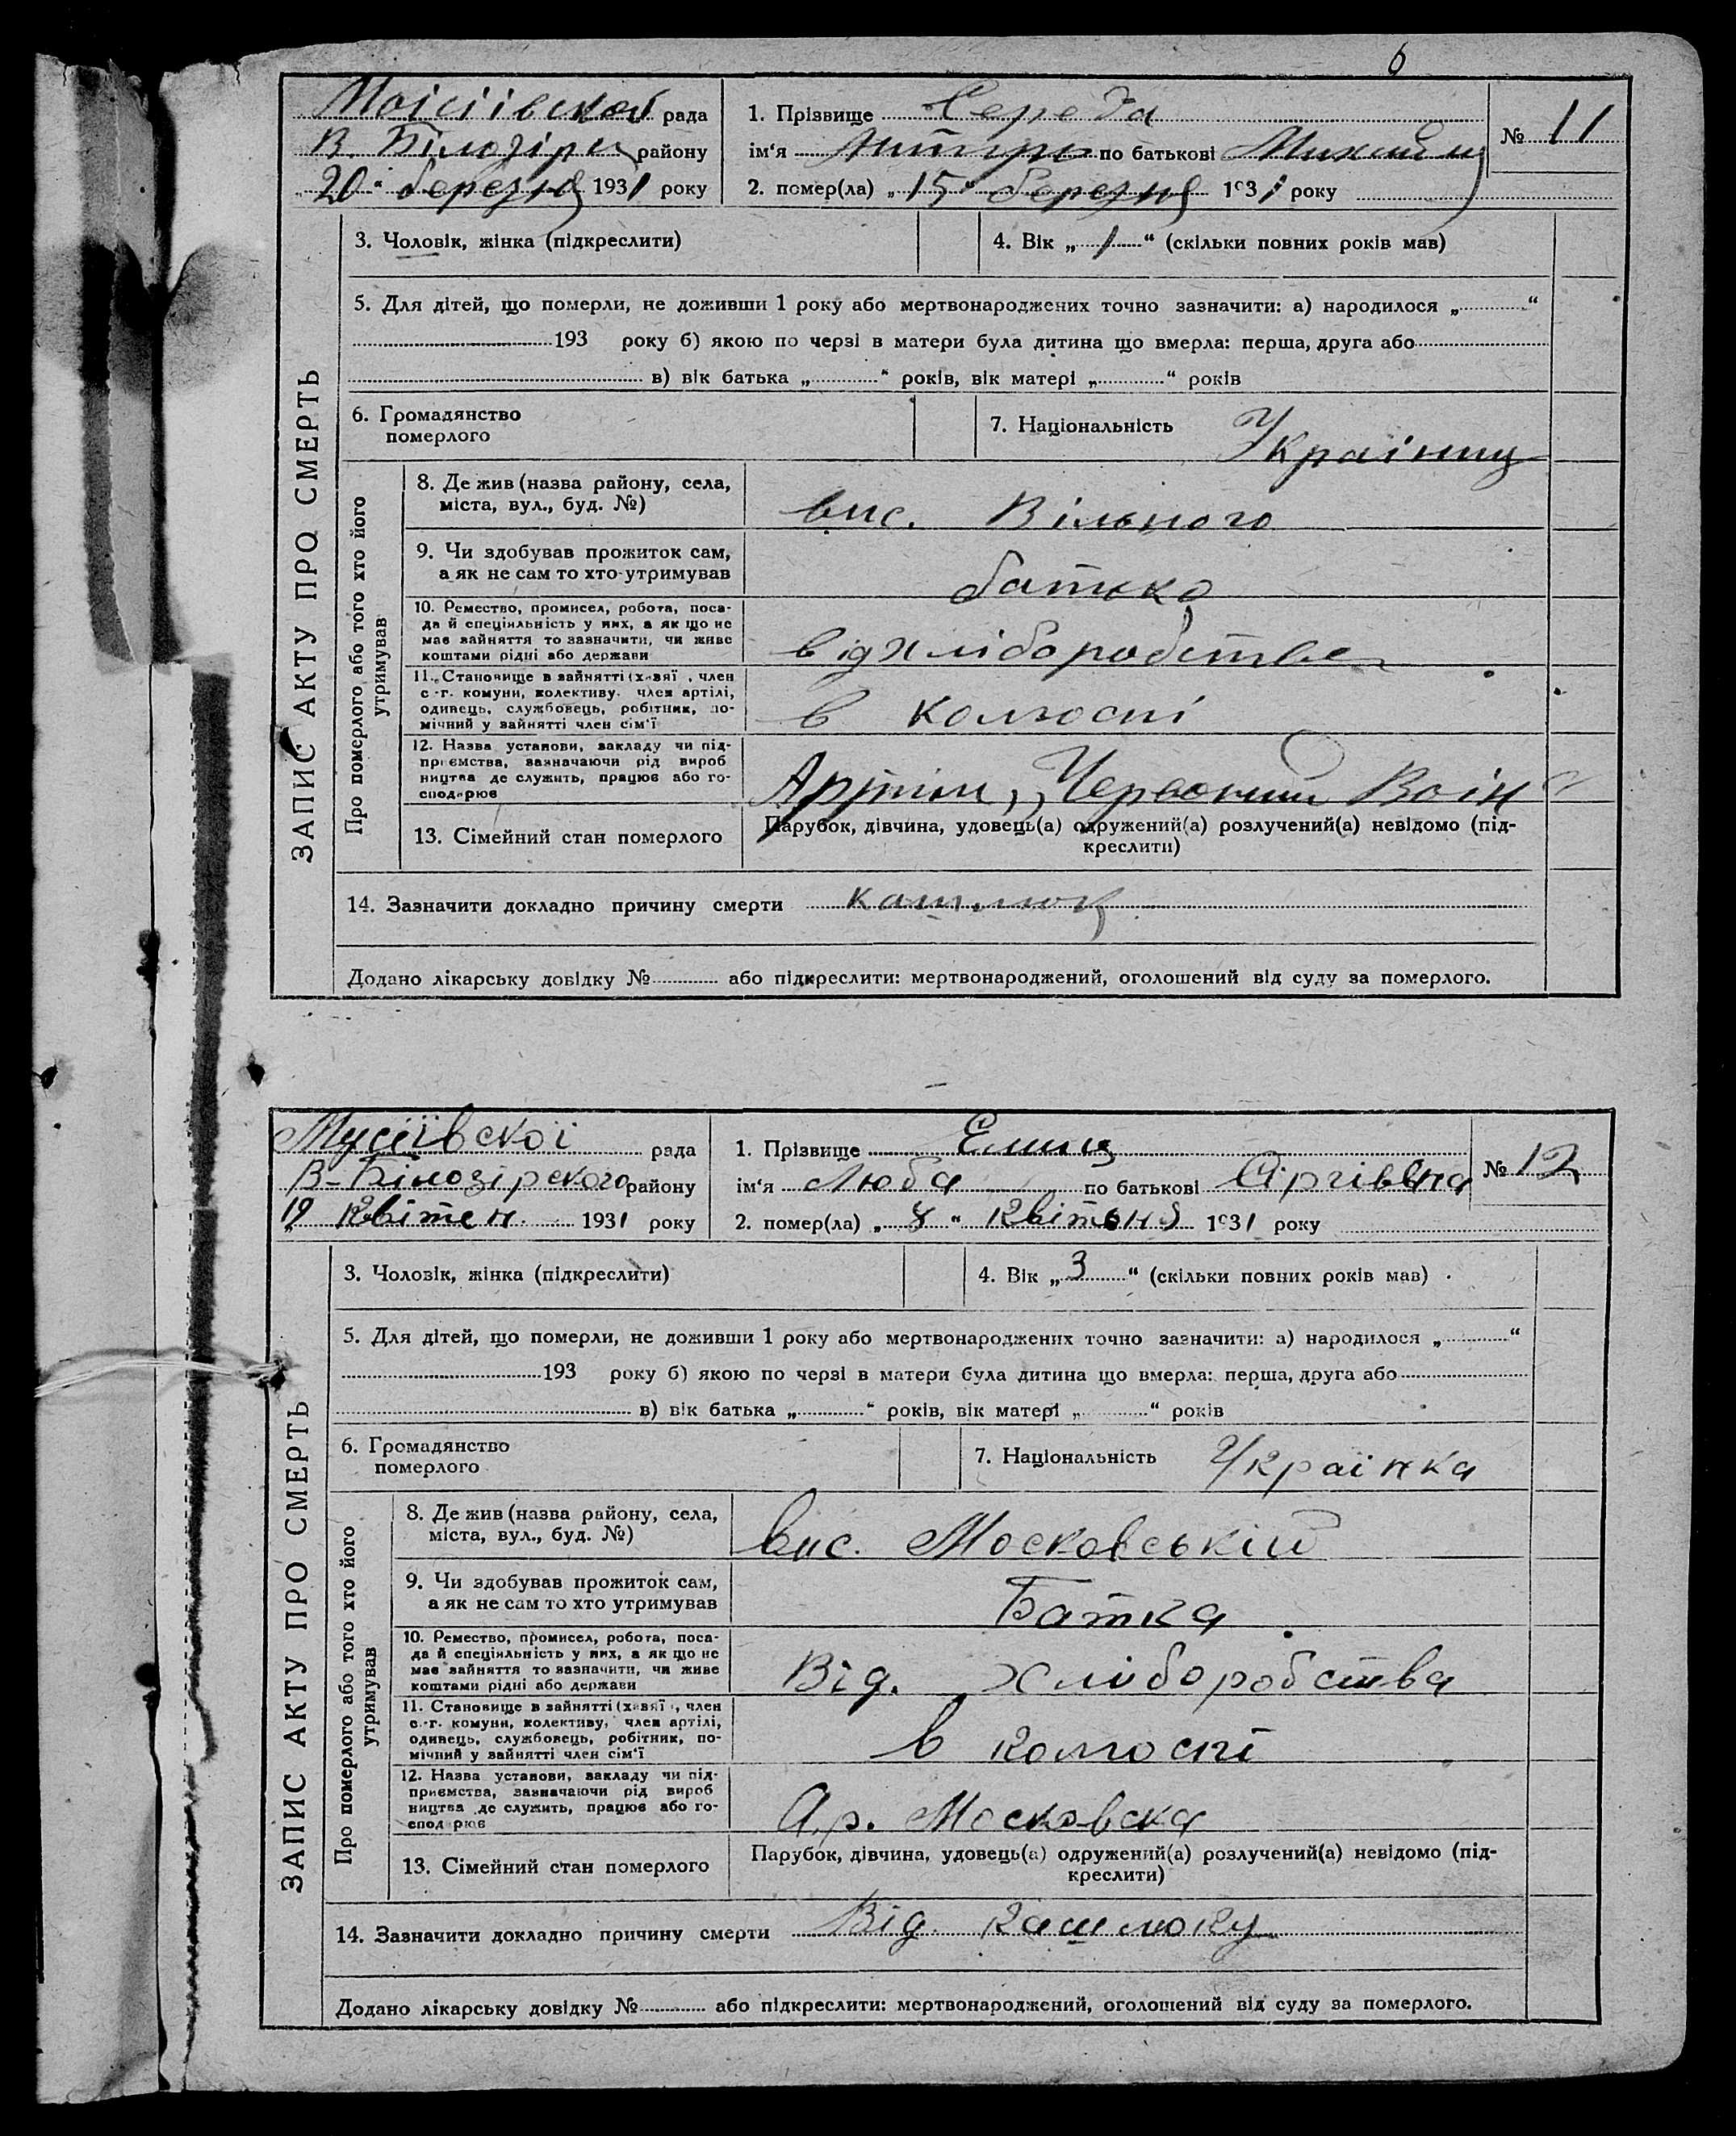 6
Моісіївської рада
В. Білозірки району
„20“ березня 1931 року
1. Прізвище Середа
ім‘я Митро по батькові
2. помер(ла) „15“ березня 1931 року
№ 11
ЗАПИС АКТУ ПРО СМЕРТЬ
3. Чоловік, жінка (підкреслити)
4. Вік „1“ (скільки повних років мав)
5. Для дітей, що померли, не доживши 1 року або мертвонароджених точно зазначити: а) народилося „ “
193 року б) якою по черзі в матери була дитина що вмерла: перша, друга або
в) вік батька „ “ років, вік матері „ “ років
6. Громадянство
померлого
7. Національність Українец
Про померлого або того хто його
утримував
8. Де жив (назва району, села,
міста, вул., буд. №)
вис. Вільного
9. Чи здобував прожиток сам,
а як не сам то хто утримував
батько
10. Ремество, промисел, робота, поса-
да й спеціяльність у них, а як що не
має зайняття то зазначити, чи живе
коштами рідні або держави
від хліборобства
11. Становище в зайнятті (хазяї , член
с.-г. комуни, колективу, член артілі,
одинець, службовець, робітник, по-
мічний у зайнятті член сім‘ї
в колгоспі
12. Назва установи, закладу чи під-
приємства, зазначаючи рід вироб
ництва де служить, працює або го-
сподарює
Артіли „Червоний Воін“
13. Сімейний стан померлого
Парубок, дівчина, удовець(а) одружений(а) розлучений(а) невідомо (під-
креслити)
14. Зазначити докладно причину смерти кашлюк
Додано лікарську довідку № або підкреслити: мертвонароджений, оголошений від суду за померлого.
Мусіївскої рада
В-Білозірского району
„19 Квітен 1931 року
1. Прізвище Елиц
ім‘я Люба по батькові Сіргівна
2. помер(ла) „8“ Квітеня 1931 року
№ 12
ЗАПИС АКТУ ПРО СМЕРТЬ
3. Чоловік, жінка (підкреслити)
4. Вік „3“ (скільки повних років мав)
5. Для дітей, що померли, не доживши 1 року або мертвонароджених точно зазначити: а) народилося „ “
193 року б) якою по черзі в матери була дитина що вмерла: перша, друга або
в) вік батька „ “ років, вік матері „ “ років
6. Громадянство
померлого
7. Національність Українка
Про померлого або того хто його
утримував
8. Де жив (назва району, села,
міста, вул., буд. №)
вис. Московський
9. Чи здобував прожиток сам,
а як не сам то хто утримував
Батка
10. Ремество, промисел, робота, поса-
да й спеціяльність у них, а як що не
має зайняття то зазначити, чи живе
коштами рідні або держави
Від. хліборобства
11. Становище в зайнятті (хазяї , член
с.-г. комуни, колективу, член артілі,
одинець, службовець, робітник, по-
мічний у зайнятті член сім‘ї
в колгоспі
12. Назва установи, закладу чи під-
приємства, зазначаючи рід вироб
ництва де служить, працює або го-
спод рює
Ар. Московска
13. Сімейний стан померлого
Парубок, дівчина, удовець(а) одружений(а) розлучений(а) невідомо (під-
креслити)
14. Зазначити докладно причину смерти Від. кашлюку
Додано лікарську довідку № або підкреслити: мертвонароджений, оголошений від суду за померлого.